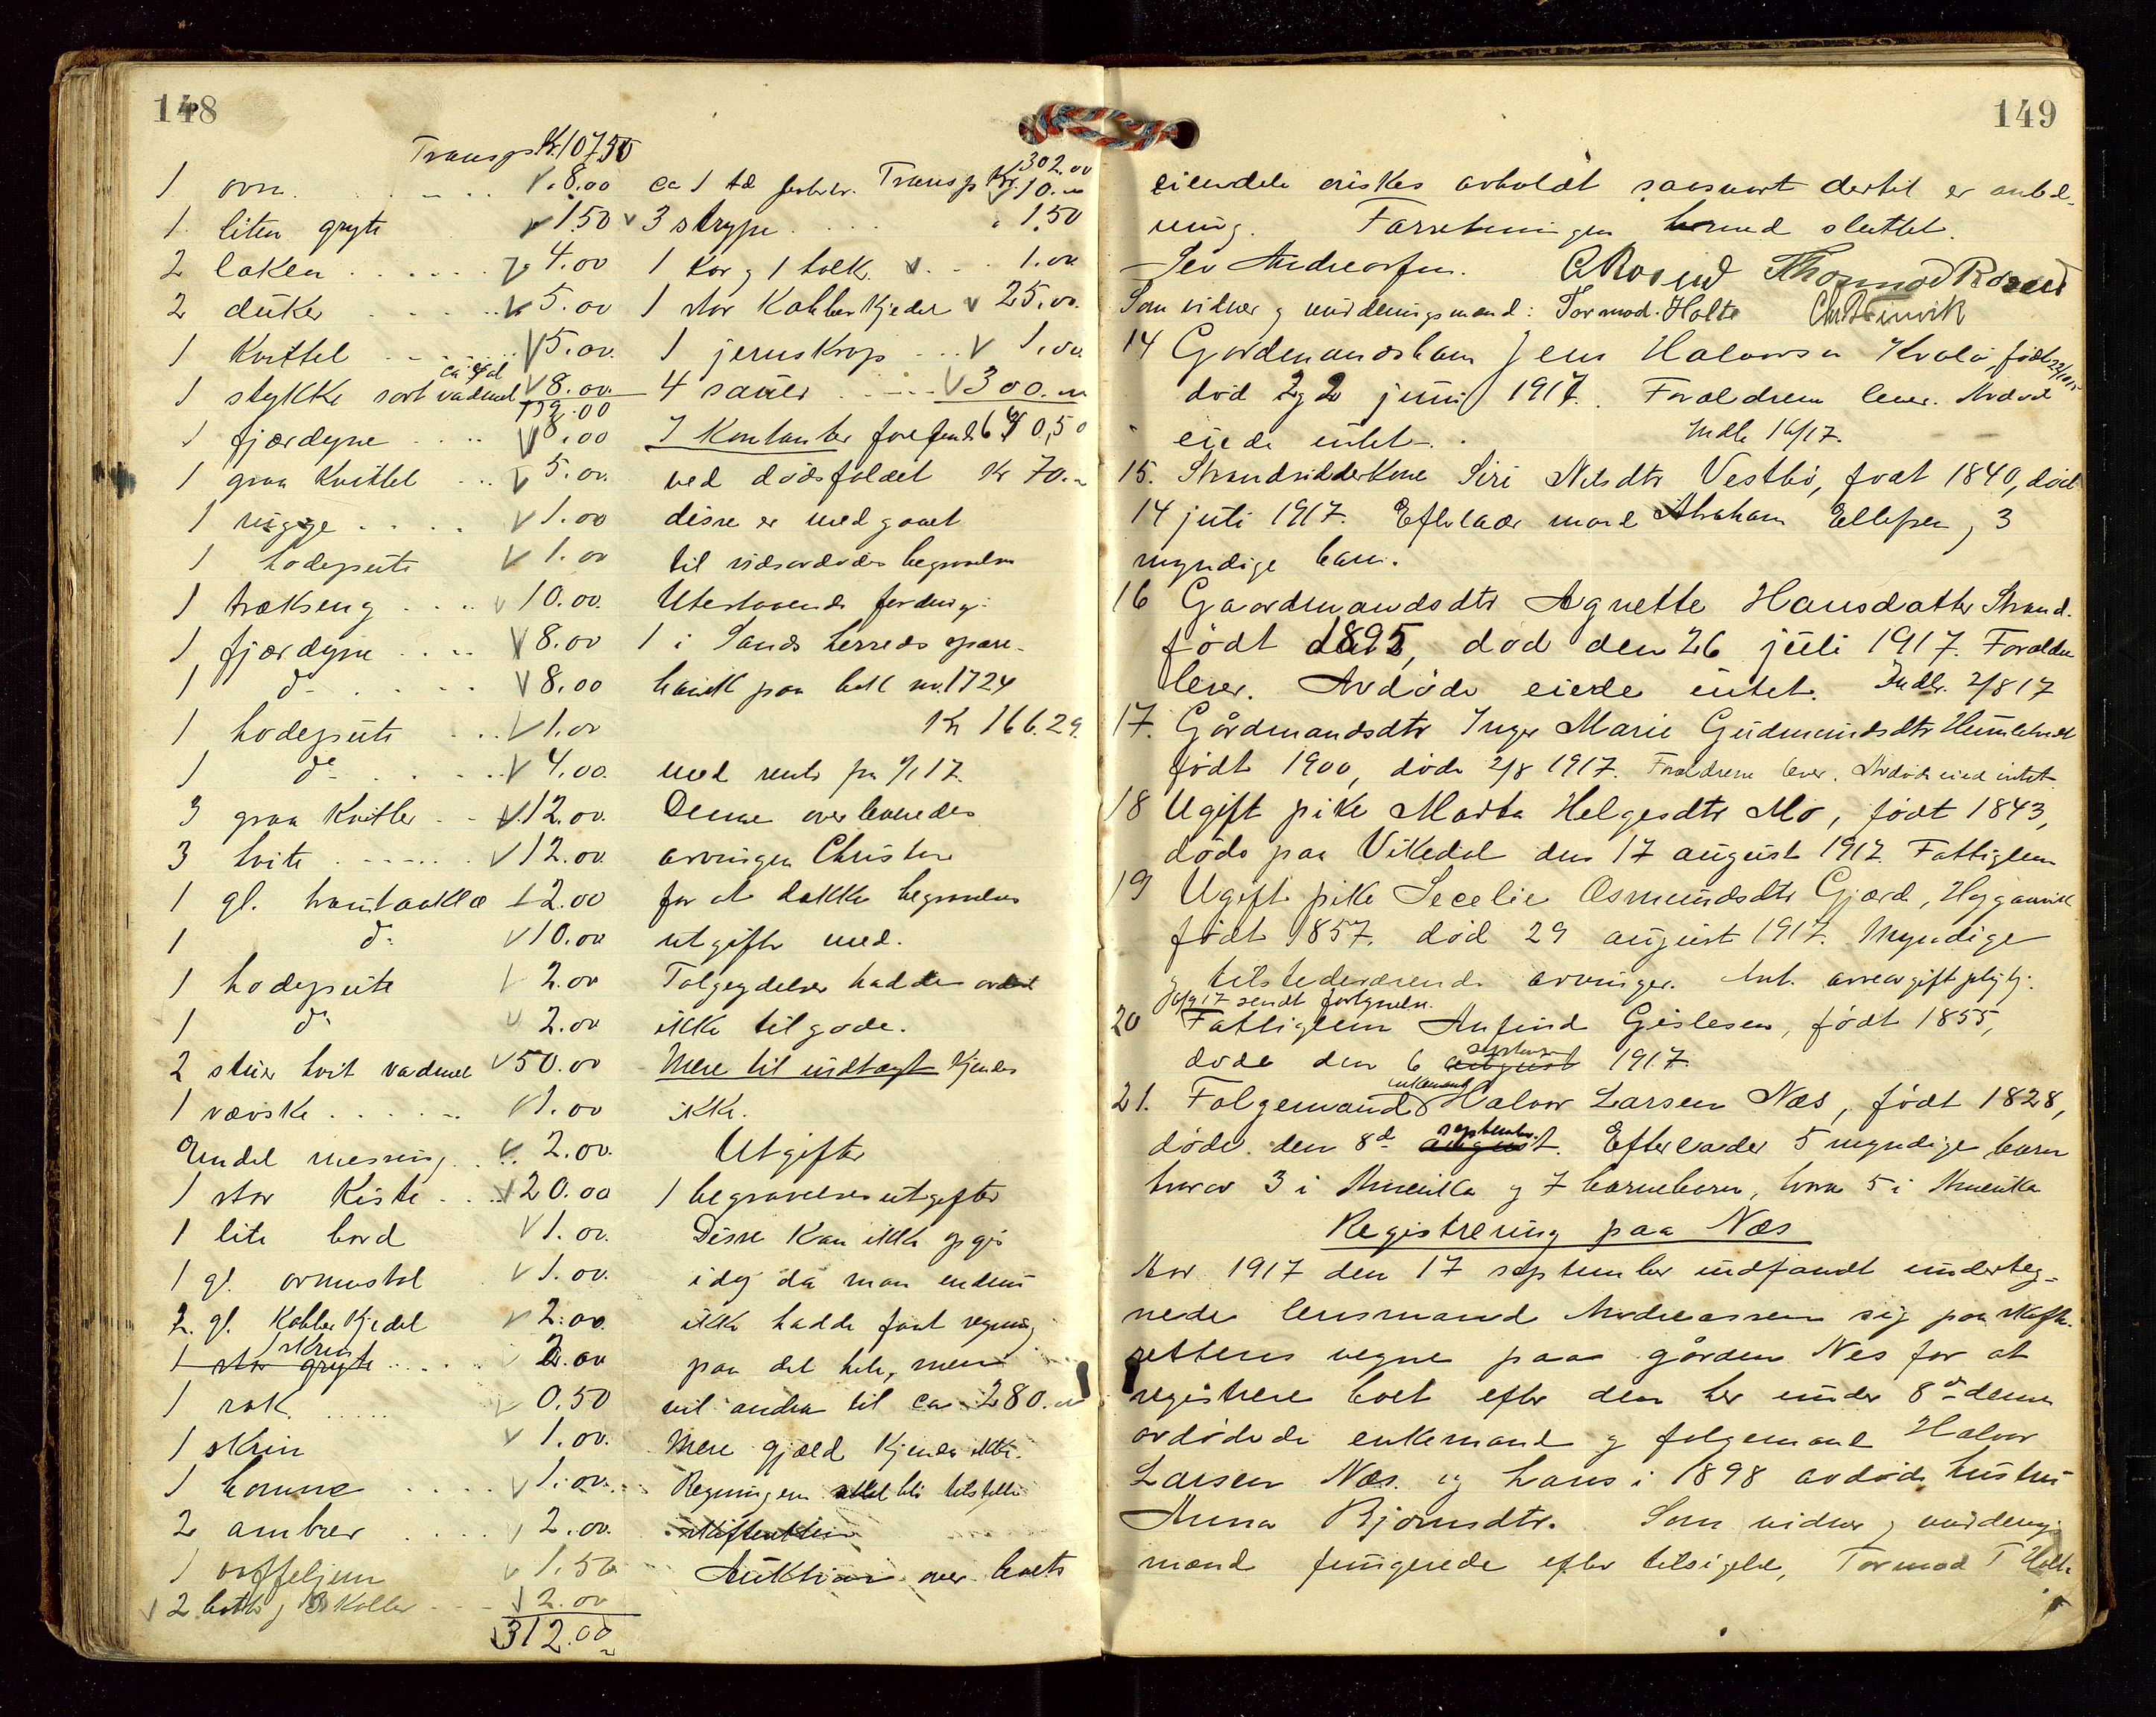 148
Transp Kr. 107.50
1 ovn 8.00
1 liten gryte 1.50
2 laken 4.00
2 duker 5.00
1 Kvittel 5.00
1 stykke sort vadmel 8.00
1 fjærdyne 8.00
1 graa Kvittel 5.00
1 rugge 1.00
1 hodepute 1.00
1 trækseng 10.00
1 fjærdyne 8.00
1 do 8.00
1 hodepute 1.00
1 do 4.00
3 graa Kvitler 12.00
3 hvite 12.00
1 gl. 2.00
1 do 10.00
1 hodepute 2.00
1 do 2.00
2 stuer hvit vadmel 50.00
1 vævske 1.00
Endel messing 2.00
1 stor Kiste 20.00
1 lite bord 1.00
1 gl. ormustol 1.00
2 gl. Kobber Kjedel 2.00
1 skrin
1 stor gryte 2.00
1 rok 0.50
1 skrin 1.00
1 komme 1.00
2 ambrer 2.00
1 vaffeljern 1.50
2 og Koller 2.00
312.00
302.00
ca 1 td Transp Kr. 10.00
3 strype 1.50
1 kar og 1 holk 1.00
1 stor Kobber Kjedel 25.00
1 jernskrap 1.00
4 sauer 300.00
640,50
I Kontanter forefandtes
ved dødsfaldet Kr 70.
disse er med gaaet
til avdødes begravelse
Utestaaende fordring:
1 i Sands herreds spare-
bank paa bok nr. 1724
Kr 166.29.
med rente fra 1/1 17.
Denne overleveredes
arvingen Christen
for at dække begravelses
utgifter med.
Folgeydelser hadde avdøde
ikke tilgode.
Mere til indtægt Kjendes
ikke.
Utgifter
1 begravelsesutgifter
Disse Kan ikke opgis
idag da man endnu
ikke hadde faat regning
paa det hele, men
vil andra til ca 280.00
Mere gjæld Kjendes ikke.
Regningen skal bli tilstillet
skifteretten
Auktion over boets
149
eiendele ønskes avholdt saasnart dertil er anled-
ning. Forretningen hermed sluttet.
Sev Andreassen.
Som vidner og vurderingsmænd: Tormod Holte
14 Gardmandsbarn Jens Halvorsen Kvalø, født 22/10 15
død 22 juni 1917. Forældrene lever. Avdøde
eiede intet. Indb 16/17.
15. Strandsidderkone Siri Nilsdtr Vestbø, født 1840, død
14 juli 1917. Efterlader mand Abraham Ellefsen, 3
myndige barn.
16 Gaardmandsdtr Agnette Hansdatter Strand.
født 1895, død den 26 juli 1917. Forældre
lever. Avdøde eiede intet. Indb. 2/8 17
17. Gårdmandsdtr Inger Marie Gudmundsdtr
født 1900, døde 2/8 1917. Forældrene lever. Avdøde eied intet
18 Ugift pike Marta Helgesdtr Mo, født 1843,
døde paa Vikedal den 17 august 1917. Fattiglem
19 Ugift pike Secelie Osmundsdtr Gjærd, Hogganvik
født 1857. død 29 august 1917. Myndige
og tilstedeværende arvinger. Ant. arveavgiftpligtig.
6/9 17 sendt fortegnelse.
20 Fattiglem Anfind Gislesen, født 1855,
døde den 6 august september 1917.
21. Folgemand enkemand Halvor Larsen Næs, født 1828,
døde den 8de august september. Efterlader 5 myndige barn
hvorav 3 i Amerika og 7 barnebarn, hvorav 5 i Amerika
Registrering paa Næs
Aar 1917 den 17 september indfandt underteg-
nede lensmand Andreassen sig paa skifte-
rettens vegne paa gården Nes for at
registrere boet efter den her under 8de dennes
avdødede enkemand og folgemand Halvor
Larsen Næs og hans i 1898 avdøde hustru
Anna Bjørnsdtr. Som vidner og vurderings
mænd fungerede efter tilsigelse, Tormod T Holte